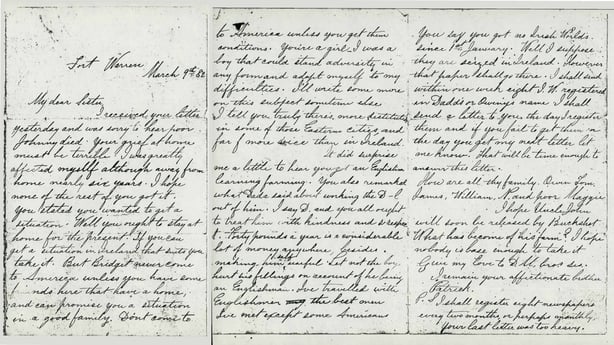 Fort Warren
March 9th 82
My dear Sister
I received your letter
yesterday and was sorry to hear poor
Johnny died. Your grief at home
must be terrible I was greatly
affected myself although away from
home nearly six years. I hope
none of the rest of you got it.
You stated you wanted to get a
situation. Well you ought to stay at
home for the present. If you can
get a situation in Ireland that suits you
take it. But Bridget never come
to America unless you have some
friends here that have a home,
and can promise you a situation
in a good family. Dont come to
to America unless you get them
conditions. You're a girl. I was a
boy that could stand adversity in
any form and adopt myself to my
difficulties. I'll write some more
on this subject sometime else
I tell you truly there's more destitute
in some of those Eastern cities and
far far more vice than in Ireland.
It did surprise
me a little to hear you got an Englishman
learning farming. You also remarked
what Dada said about working the D-l
out of him. I say D. and you all ought
to treat him with kindness and respect.
Forty pounds a year is a considerable
lot of money anywhere, besides
making him useful. Let not the boy
hurt his fillings on account of he being
an Englishman. I've travelled with
Englishmen the best men
I've met except some Americans
You say you got no Irish Worlds
since 1st January. Well I suppose
they are seized in Ireland. However
that paper shall go there. I shall send
within one week eight I.W. registered
in Dadds or Owiny's name I shall
send a letter to you the day I register
them and if you fail to get them on
the day you get my next letter let
me know. That will be time enough to
answer this letter.
How are all thy family. Owen Tom
James, William, N. and poor Maggie
I hope Uncle John
will soon be released by Buckshot
What has become of his farm? I hope
nobody is base enough to take it.
Give my love to D.M. bros sis.
I remain your affectionate brother
Patrick.
P.S. I shall register eight newspapers
every two months or perhaps monthly.
Your last letter was too heavy.